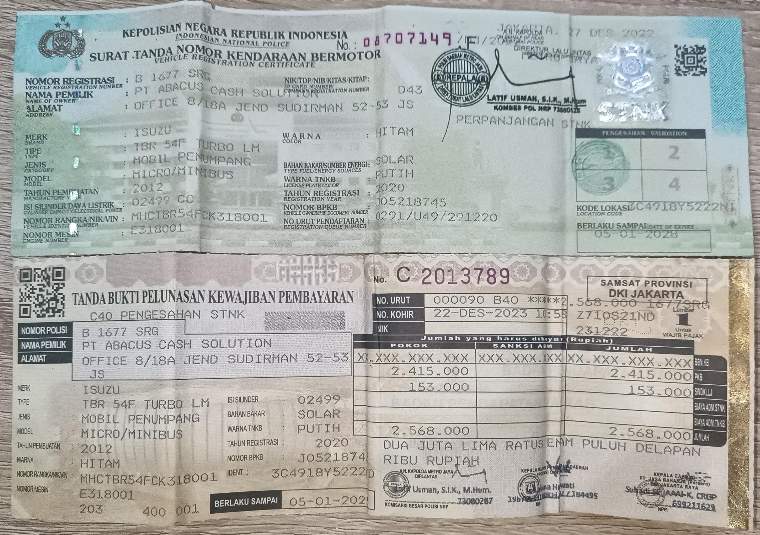 KEPOLISIAN NEGARA REPUBLIK INDONESIA
INDONESIAN NATIONAL POLICE
SURAT TANDA NOMOR KENDARAAN BERMOTOR
VEHICLE REGISTRATION CERTIFICATE
No.: 08707149
JAKARTA, 27 DES 2022
DIREKTUR LALU LINTAS
KEPALA
LATIF USMAN, S.I.K., M.Hum
KOMBES POL NRP 73080287
STNK
NOMOR REGISTRASI : B 1677 SRG
VEHICLE REGISTRATION NUMBER
NIK/TDP/NIB/KITAS/KITAP :
NAMA PEMILIK : PT ABACUS CASH SOLUTION D43
NAME OF OWNER
ALAMAT : OFFICE 8/18A JEND SUDIRMAN 52-53 JS
ADDRESS
PERPANJANGAN STNK
MERK : ISUZU
TYPE : TBR 54F TURBO LM
JENIS : MOBIL PENUMPANG
MODEL : MICRO/MINIBUS
TAHUN PEMBUATAN : 2012
ISI SILINDER/DAYA LISTRIK : 02499 CC
NOMOR RANGKA/NIK/VIN : MHCTBR54FCK318001
NOMOR MESIN : E318001
ENGINE NUMBER
WARNA : HITAM
COLOR
BAHAN BAKAR/SUMBER ENERGI : SOLAR
TYPE FUEL/ENERGY SOURCES
WARNA TNKB : PUTIH
LICENSE PLATE COLOR
TAHUN REGISTRASI : 2020
REGISTRATION YEAR
NOMOR BPKB : J05218745
NO URUT PENDAFTARAN : 0291/U49/291220
REGISTRATION QUEUE NUMBER
PENGESAHAN VALIDATION
1 2
3 4
KODE LOKASI
LOCATION CODE
BERLAKU SAMPAI DATE OF EXPIRE
05-01-2028
TANDA BUKTI PELUNASAN KEWAJIBAN PEMBAYARAN
C40 PENGESAHAN STNK
NOMOR POLISI B 1677 SRG
NAMA PEMILIK PT ABACUS CASH SOLUTION
ALAMAT OFFICE 8/18A JEND SUDIRMAN 52-53
JS
MERK : ISUZU
TYPE : TBR 54F TURBO LM
JENIS : MOBIL PENUMPANG
MODEL : MICRO/MINIBUS
TAHUN PEMBUATAN : 2012
WARNA : HITAM
NOMOR RANGKA/NIK/VIN : MHCTBR54FCK318001
NOMOR MESIN E318001
203 400 001
ISI SILINDER : 02499
BAHAN BAKAR : SOLAR
WARNA TNKB : PUTIH
TAHUN REGISTRASI : 2020
NOMOR BPKB : J0521874
IDENT. : 3C4918Y5222
BERLAKU SAMPAI 05-01-202
No. C 2013789
SAMSAT PROVINSI
DKI JAKARTA
NO. URUT 000090 B40 *****2.568.000 1677SRG
NO. KOHIR 22-DES-2023 Z71QS21ND
NIK 231222
Lembar 1 Untuk WAJIB PAJAK
Jumlah yang harus dibayar (Rupiah)
POKOK SANKSI ADM JUMLAH
XX.XXX.XXX.XXX XX.XXX.XXX.XXX XX.XXX.XXX.XXX BBN KB
2.415.000 2.415.000 PKB
153.000 153.000 SWDKLLJ
BIAYA ADM STNK
BIAYA ADM TNKB
2.568.000 2.568.000 JUMLAH
DUA JUTA LIMA RATUS ENAM PULUH DELAPAN
RIBU RUPIAH
Usman, S.I.K., M.Hum.
73080287